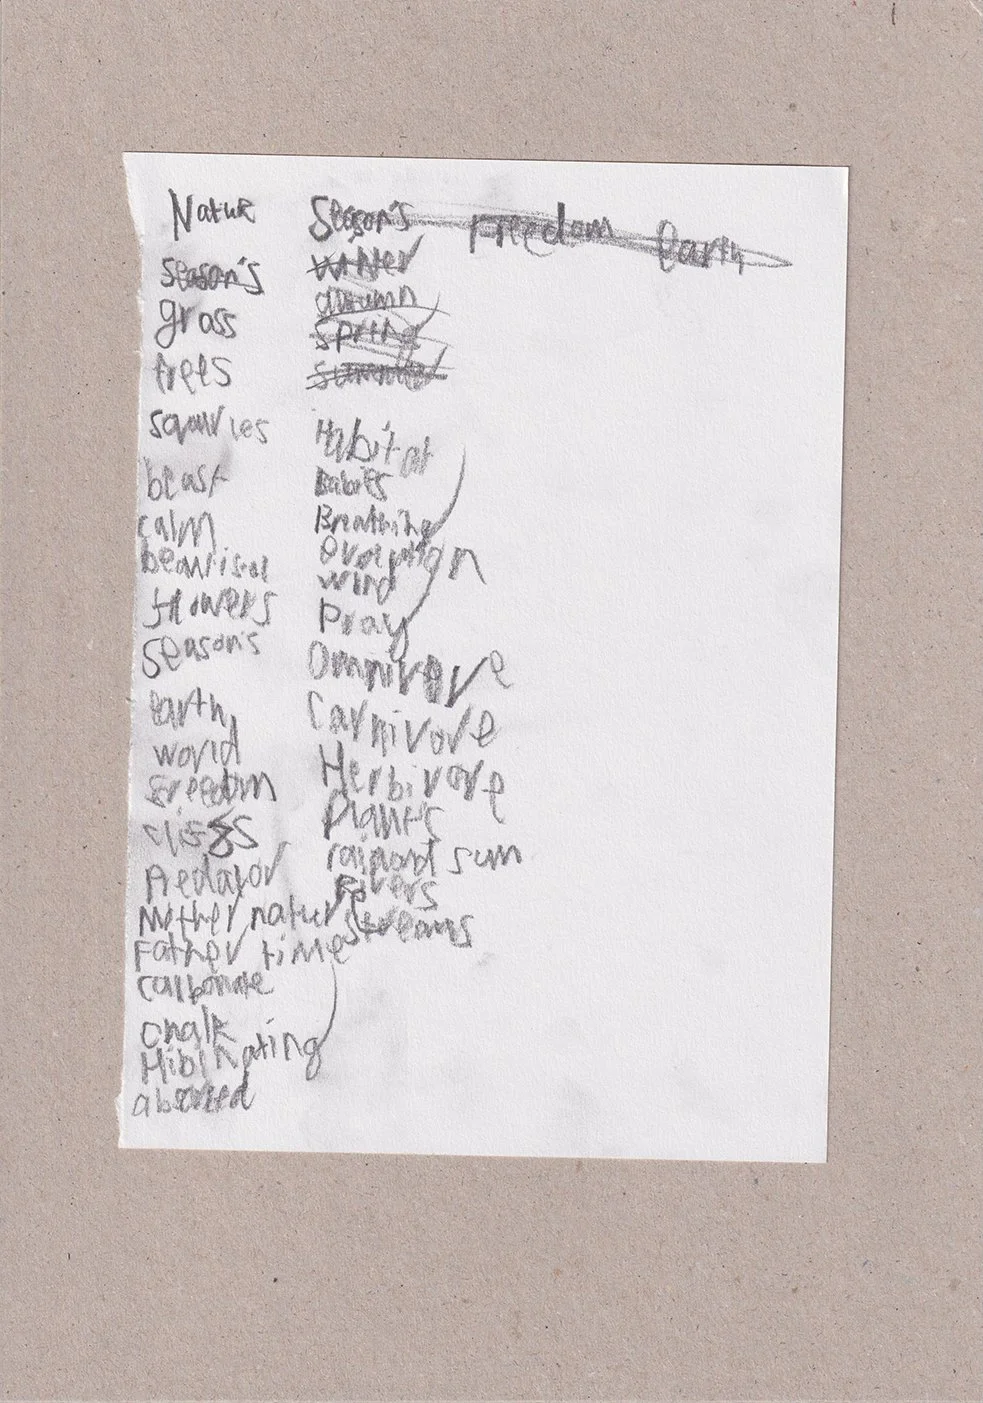 Nature Season's Freedom Earth
season's
grass
trees
squarries
beast
calm
flowers
season's
earth
world
freedom
Predator
Mother nature
Father time
carbonate
chalk
Hibirnating
winter
autumn
spring
summer
Habitat
Babies
Breathing
wind
Pray
Omnivore
Carnivore
Herbivore
Plant's
sun
Rivers
Streams